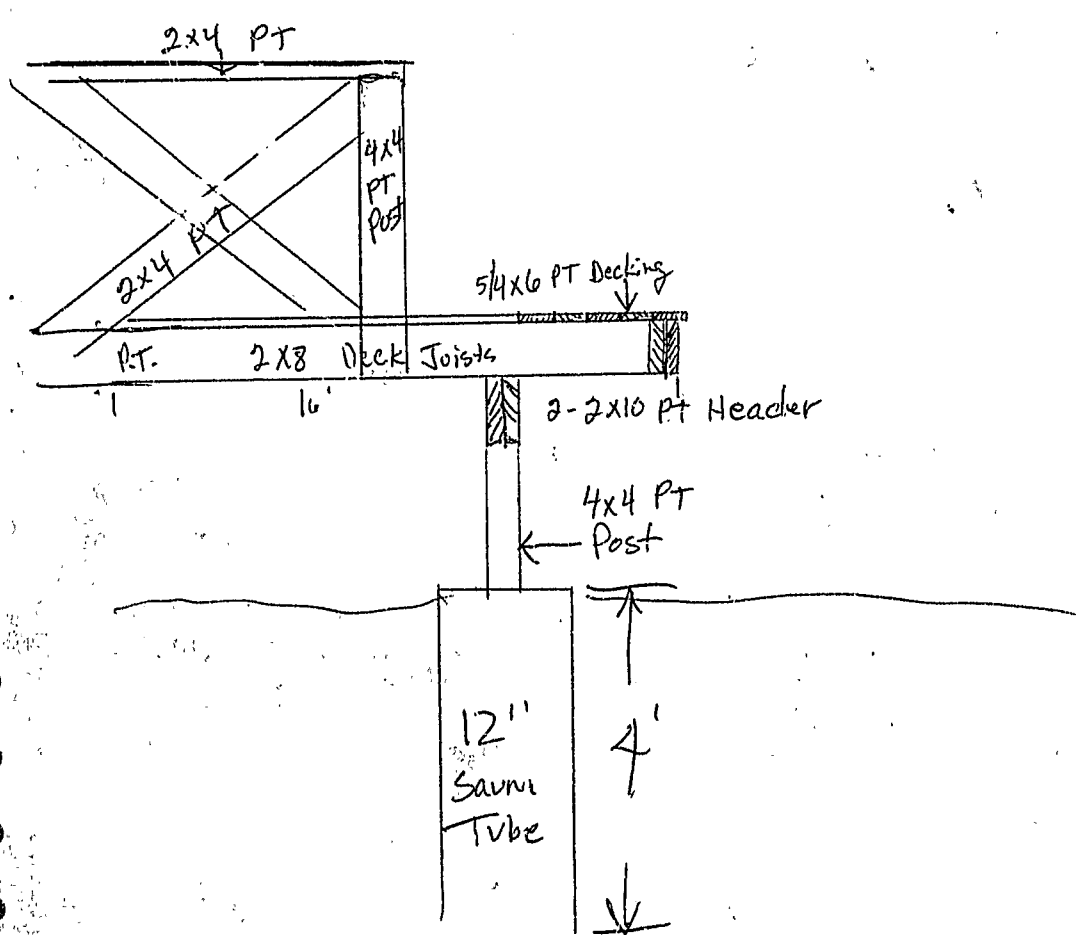 2x4 PT
4x4
PT
Post
2x4 PT
5/4x6 PT Decking
P.T. 2x8 Deck Joists
16'
2-2x10 Pt Header
4x4 PT
Post
12"
4'
Tube